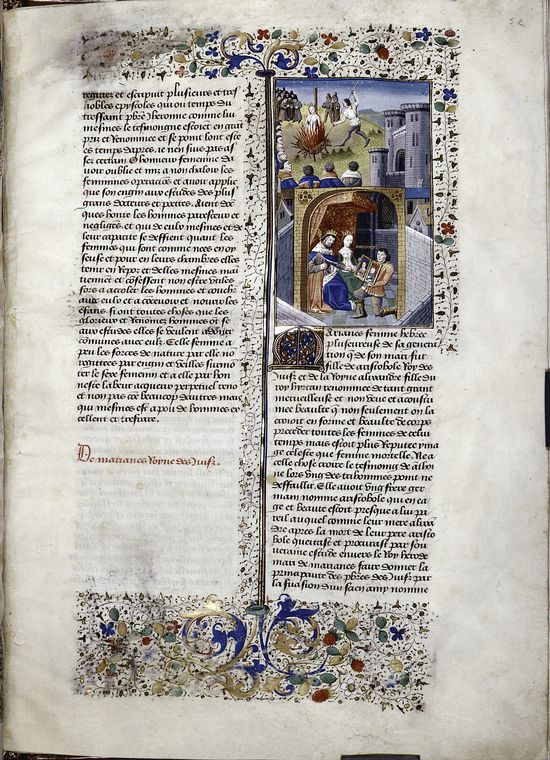 52
regretter et escripuit plusieurs et tres
nobles epystoles qui ou temps du
tressaint pbre Iherome comme lui
mesmes le tesmongne estoiet en grat
pris et Renommee et se point sont este
ces temps dapres. ie nen suis pas as
sez certain O honneur feminine
auoir oublie et mis a non chaloir les
feminines operacions et auoir applic
que son engin aux estudes des plus
grans docteurs et poetes.
ques honte les hommes pareseux et
negliges. et qui de eulx mesmes et de
leur capacite se deffient quant les
femmes qui sont comme nees en oy
seuse et pour en leurs chambres elles
tenir en Repos et delles mesmes mai
tiennent et cofessent non estre vtiles
fors a acoler les hommes et couch
aux eulx et a conceuoir et nourir les
enfans. si ont toutes choses que les
glorieux et Renomez hommes ot se
aux estudes elles se veulent adoner
communes auec eulx. Celle femme a
peu les forces de nature par elle no
regittees par engin et veilles surmo
ter le sexe feminin et a elle par hon
neste labeur acquerir perpetuel reno
et non pas coe beaucoup dautres mais
qui mesmes est a pou de hommes ex
cellent et tresrare.
De mariannes Royne des Juifz.
Mariannes femme hebree
plus eureuse de sa genera
tion que de son mari fut
fille de aristobole Roy des
Juifz et de la Royne alixandre fille du
roy hircan renommee de tant grant
merueilleuse et non veue et acoustu
mee beaulte que non seulement on la
creoit en forme et beaulte de corps
preceder toutes les femmes de celui
temps mais estoit plus Reputee yma
ge celeste que femme mortelle. Ne a
celle chose croire le tesmoing de atho
ne lors vng des tri hommes point ne
deffaillit. Elle auoit vng frere ger
main nomme aristobole qui en ea
ge et beaute estoit presque a lui pa
reil auquel comme leur mere alixa
dre apres la mort de leur pere aristo
bole queraist et procurast par sou
ueraine estude enuers le Roy herode
mari de mariannes faire donner la
principaute des pbres des Juifz par
la suasion dun sien amy nomme